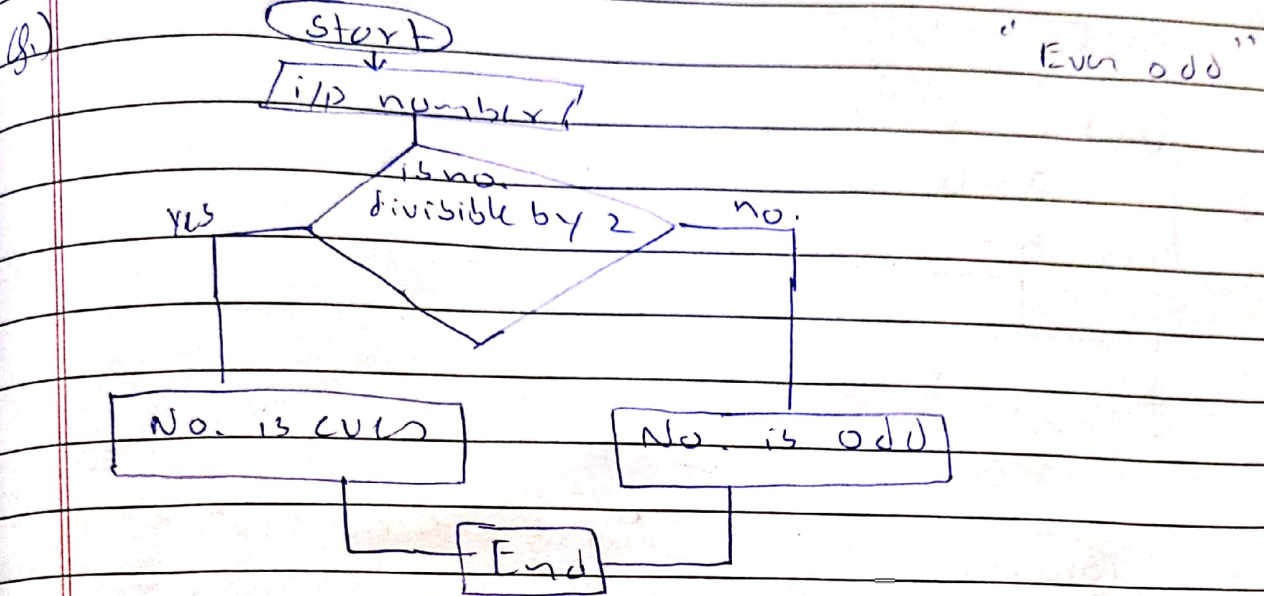 Q.)
Start
"Even odd"
i/p number
is no.
divisible by 2
yes
no.
No. is even
No. is odd
End